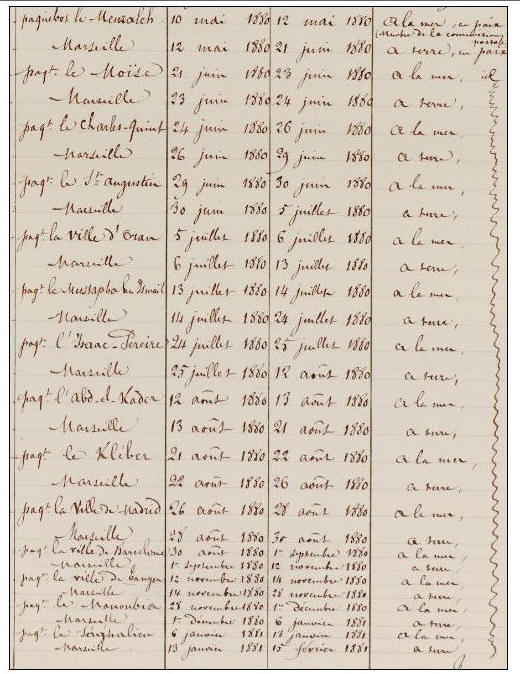 paquebot le Menzaleh 10 mai 1880 12 mai 1880 a la mer, en paix
(Membre de la commission
Marseille 12 mai 1880 21 juin 1880 a terre, en paix
paqt. le Moïse 21 juin 1880 23 juin 1880 a la mer, id
Marseille 23 juin 1880 24 juin 1880 a terre,
paqt. le Charles-Quint 24 juin 1880 26 juin 1880 a la mer
Marseille 26 juin 1880 29 juin 1880 a terre,
paqt. le St. augustin 29 juin 1880 30 juin 1880 a la mer,
Marseille 30 juin 1880 5 juillet 1880 a terre,
paqt la ville d'Oran 5 juillet 1880 6 juillet 1880 a la mer
Marseille 6 juillet 1880 13 juillet 1880 a terre,
paqt. le Mustapha ben Ismail 13 juillet 1880 14 juillet 1880 a la mer,
Marseille 14 juillet 1880 24 juillet 1880 a terre,
paqt. l'Isaac-Pereire 24 juillet 1880 25 juillet 1880 a la mer,
Marseille 25 juillet 1880 12 août 1880 a terre,
paqt l'abd-el-Kader 12 août 1880 13 août 1880 a la mer,
Marseille 13 août 1880 21 août 1880 a terre,
paqt le Kléber 21 août 1880 22 août 1880 a la mer,
Marseille 22 août 1880 26 août 1880 a terre,
paqt la Ville de Madrid 26 août 1880 28 août 1880 a la mer,
Marseille 28 août 1880 30 août 1880 a terre,
paqt la ville de Barcelone 30 août 1880 1er septembre 1880 a la mer,
Marseille 1er septembre 1880 12 novembre 1880 a terre
paqt la ville de tanger 12 novembre 1880 14 novembre 1880 a la mer
Marseille 14 novembre 1880 28 novembre 1880 a terre,
paqt. le Manoubia 28 novembre 1880 1er décembre 1880 a la mer,
Marseille 1er décembre 1880 6 janvier 1881 a terre,
paqt le Sénégalien 6 janvier 1881 13 janvier 1881 a la mer,
Marseille 13 janvier 1881 15 février 1881 a terre